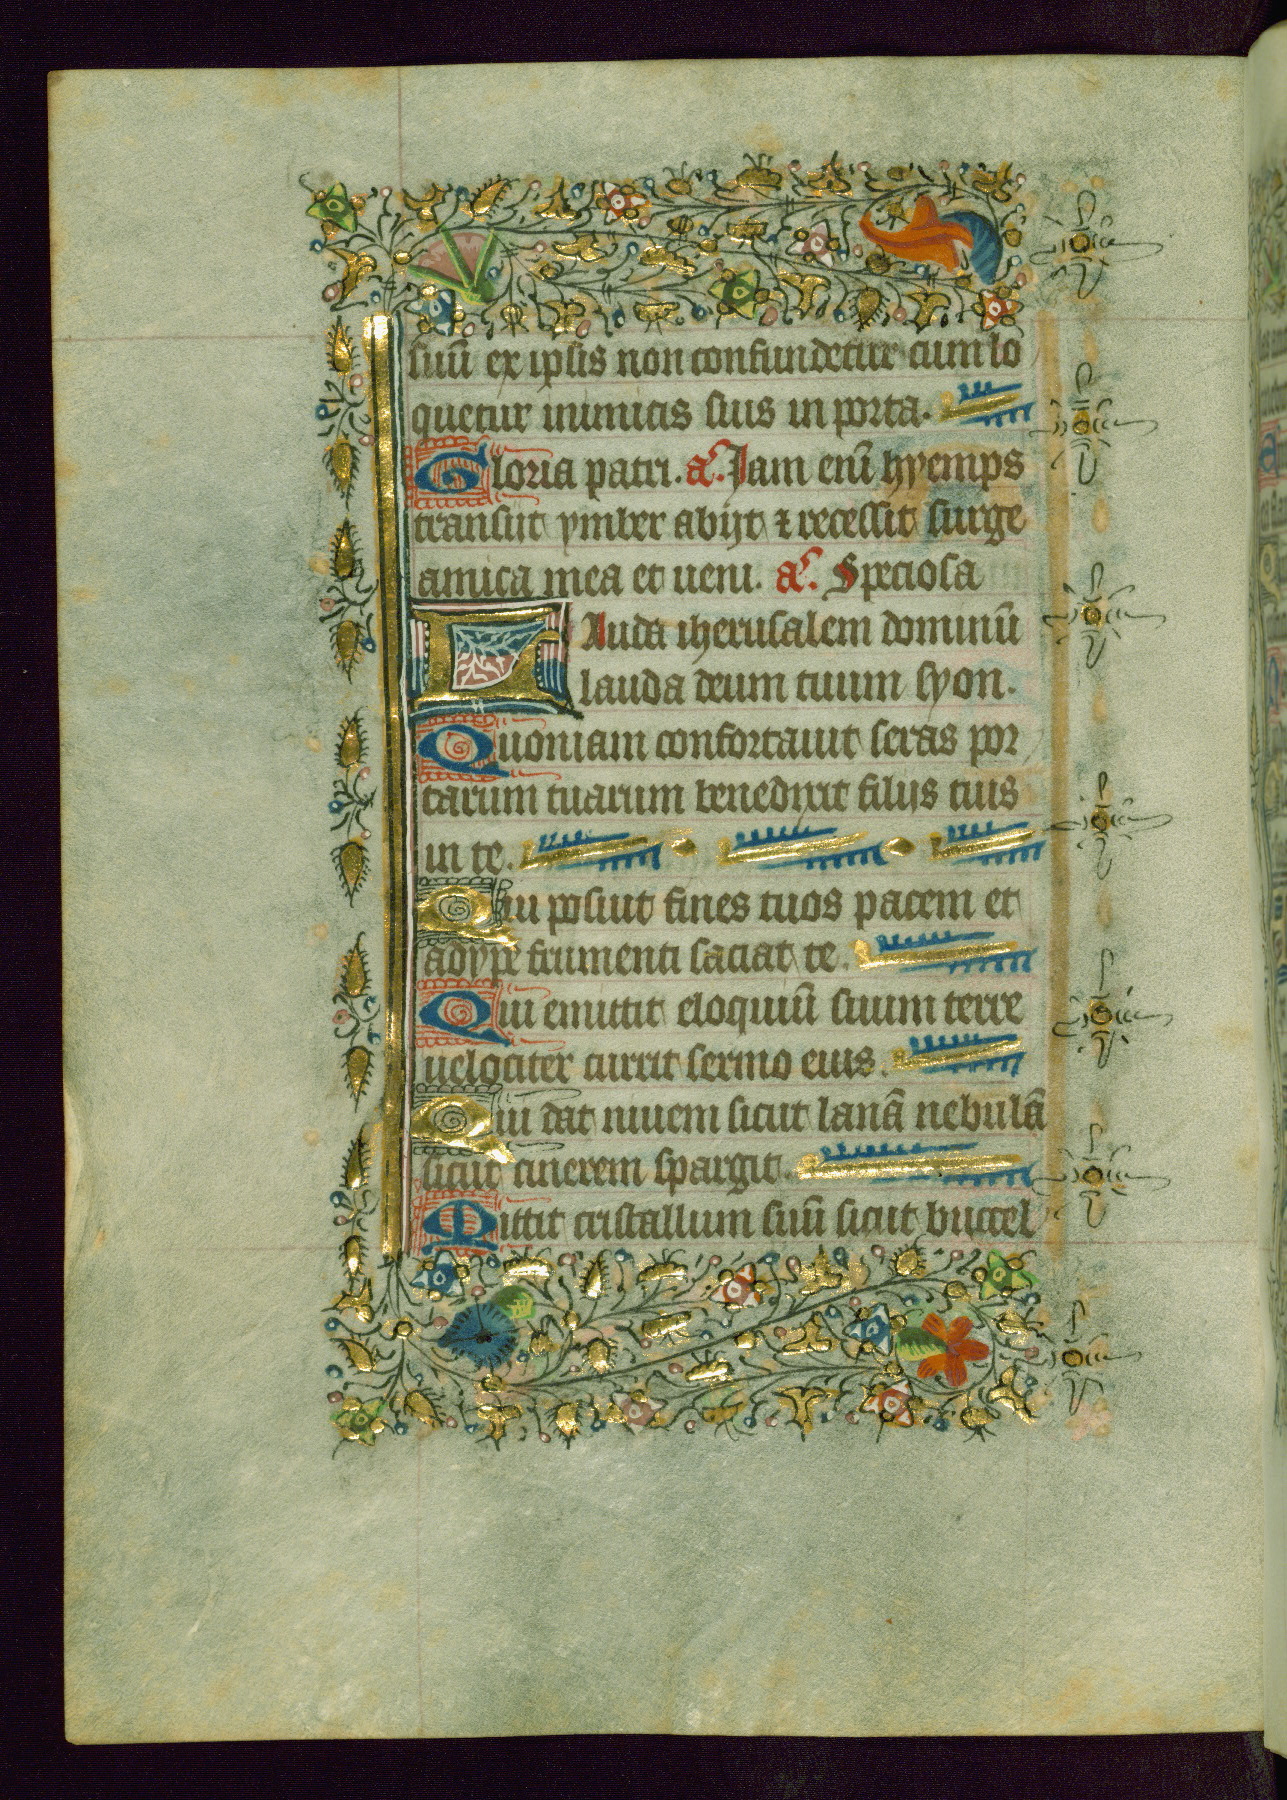 suū ex ipsis non confundetur cum lo
quetur inimicis suis in porta.
Gloria patri. a͛. Jam enī hyemps
transiit ymber abijt ⁊ recessit surge
amica mea et ueni. a͛. Speciosa
LAuda iherusalem dominū
lauda deum tuum syon.
Quoniam confortauit seras por
tarum tuarum benedixit filijs tuis
in te.
Qui posuit fines tuos pacem et
adype frumenti saciat te.
Qui emittit eloquiū suum terre
uelociter currit sermo eius.
Qui dat niuem sicut lanā nebulā
sicut cinerem spargit.
Mittit cristallium suū sicut buccel